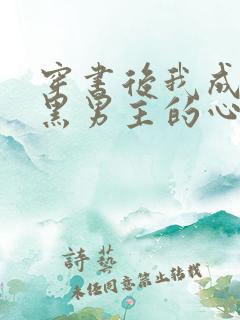 穿書後我成
黑男主的心
詩藝
未經同意禁止轉載